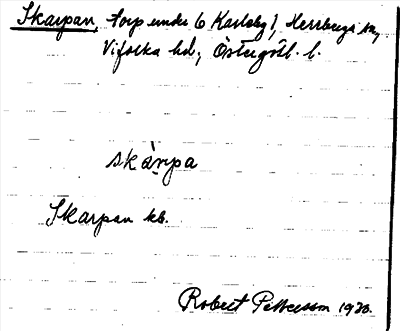 Skarpan, torp under 6 Karleby 1, Herrberga sn,
Vifolka hd, Östergötl. l.
skàrpa
Skarpan kb.
Robert Pettersson 1930.